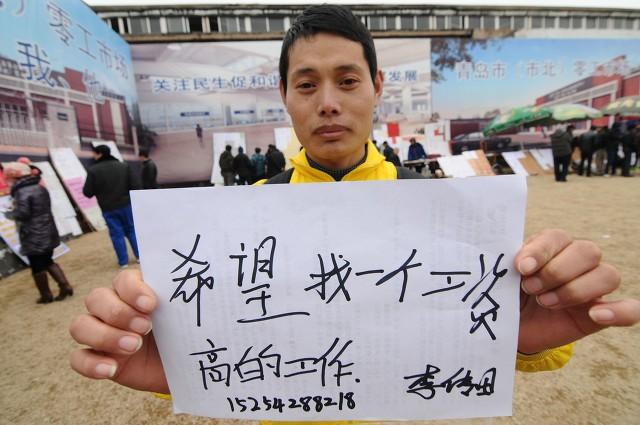 零工市场
我
关注民生促和谐
发展
青岛市（市北）零工
希望找一个工资
高的工作.
15254288218
李传田